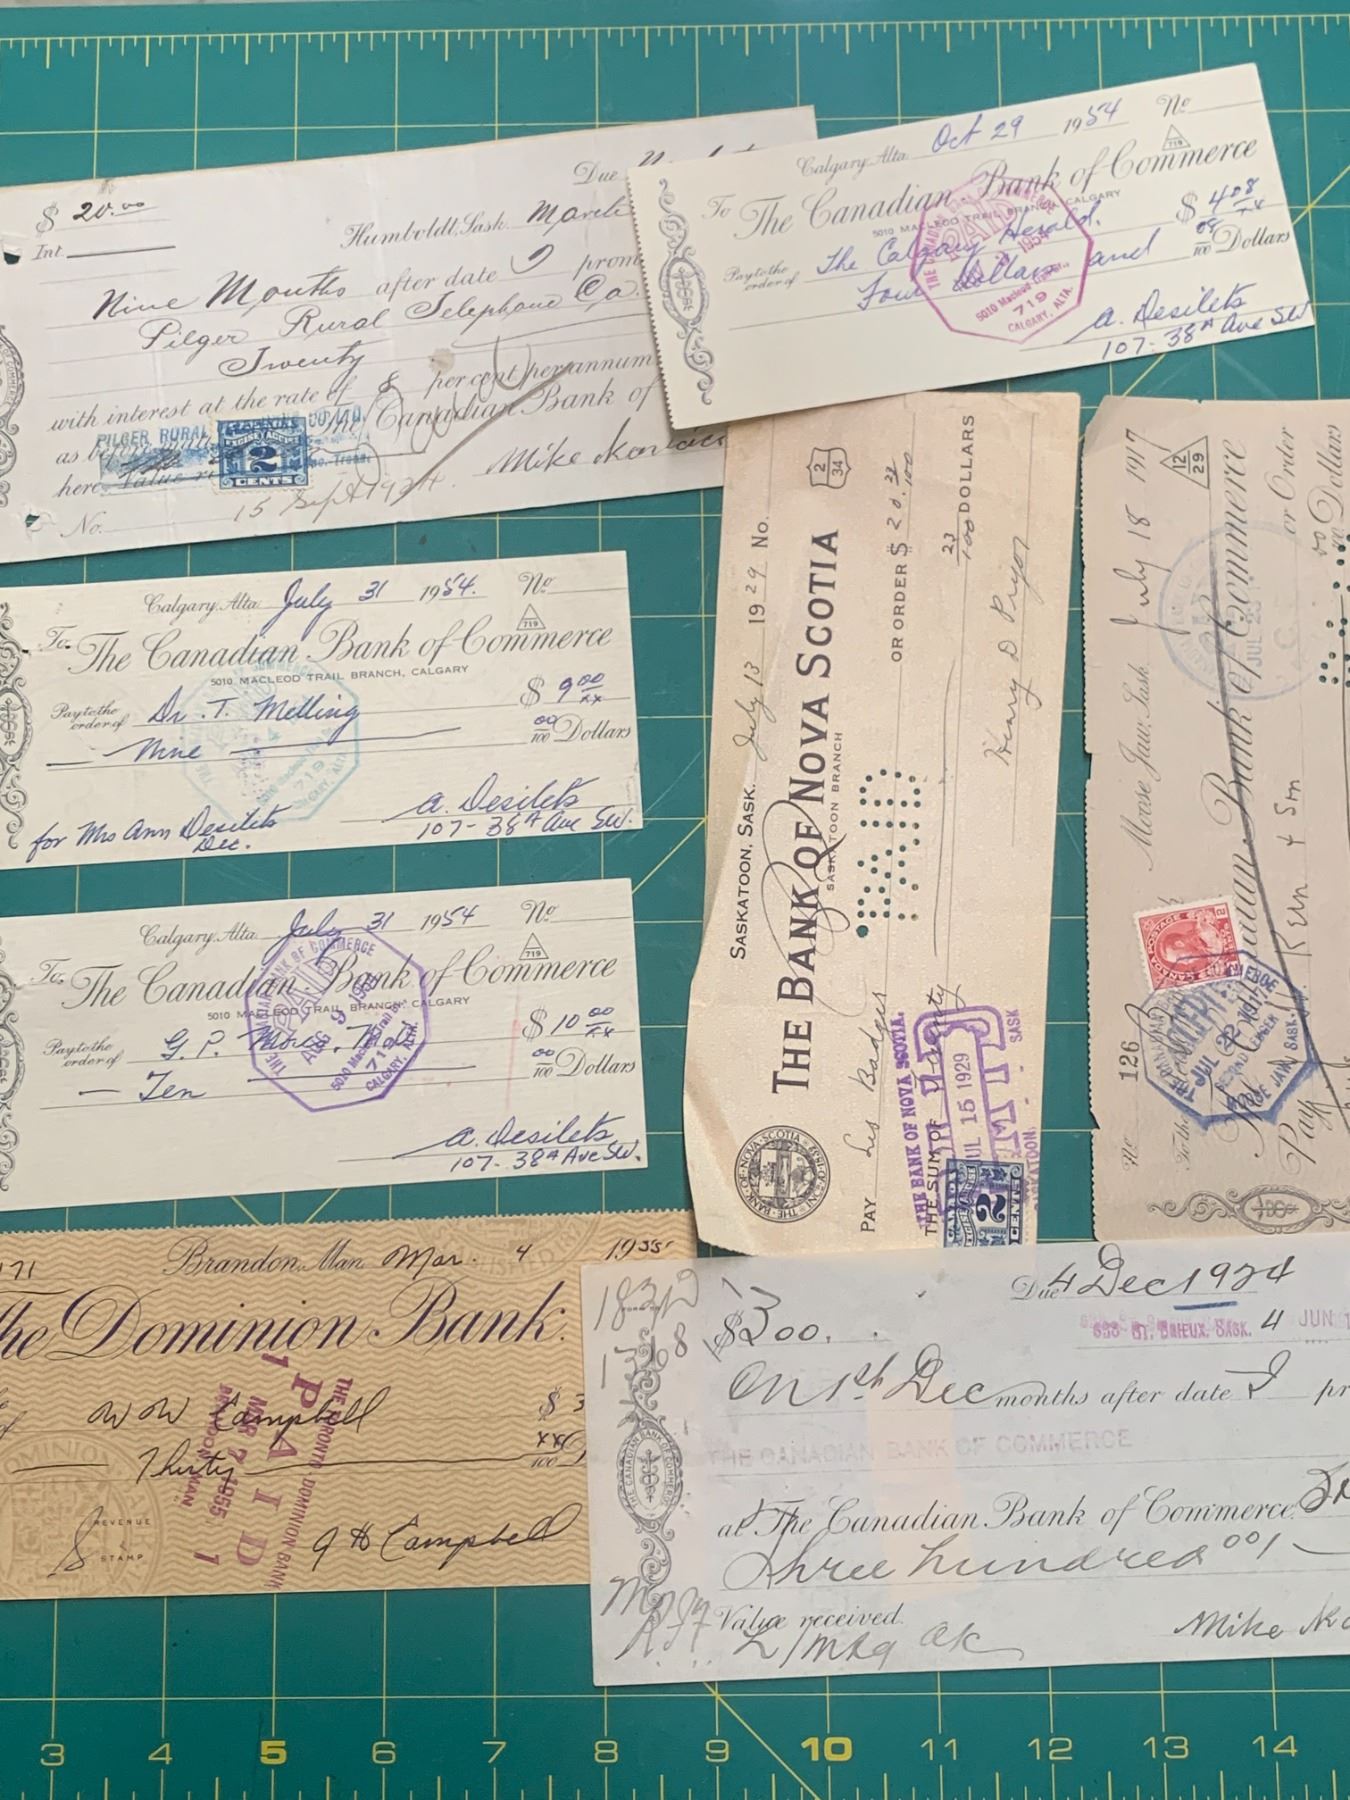 Due
$ 20.00
Int.
Humboldt, Sask. March
Nine Months after date I prom
Pilger Rural Telephone Co.
Twenty
with interest at the rate of 8 per cent per annum
as before The Canadian Bank of
here. Value
PILGER RURAL
EXCISE TAX
2
CENTS
Mike
No.
15 Sept 1924.
Calgary, Alta. Oct 29 1954 No
719
To The Canadian Bank of Commerce
5010 MACLEOD TRAIL BRANCH, CALGARY
Pay to the order of The Calgary Herald. $ 4 08/xx
Four dollars and 08/100 Dollars
PAID
1954
5010 Macleod Trail
719
CALGARY, ALTA.
A. Desilets
107-38A Ave SW
Calgary, Alta. July 31 1954. No
719
To: The Canadian Bank of Commerce
5010 MACLEOD TRAIL BRANCH, CALGARY
Pay to the order of Dr. T. Melling $ 9 00/xx
Nine 00/100 Dollars
719
A. Desilets
107-38A Ave SW.
for Mrs Ann Desilets
Dec.
Calgary, Alta. July 31 1954 No
719
To: The Canadian Bank of Commerce
5010 MACLEOD TRAIL BRANCH, CALGARY
Pay to the order of G. P. M.D. $ 10 00/xx
Ten 00/100 Dollars
PAID
AUG 9
5010 Macleod Trail Br.
719
CALGARY, ALTA.
A. Desilets
107-38A Ave SW.
SASKATOON, SASK. July 13 1929 No.
2
34
THE BANK OF NOVA SCOTIA
SASKATOON BRANCH
PAY Les Badger OR ORDER $ 20.
THE SUM OF Twenty /100 DOLLARS
Henry D Pryor
PAID
THE BANK OF NOVA SCOTIA.
JUL 15 1929
SASKATOON.
SASK
2
CENTS
No 126 Moose Jaw, Sask. July 18 1917
12
29
To the Canadian Bank of Commerce
Pay Kern & Son or Order
00 Dollars
CANADA POSTAGE
JUL
MOOSE JAW, SASK.
171 Brandon, Man. Mar. 4 1955
The Dominion Bank.
of W W Campbell $ 3
Thirty xx/100 D
REVENUE
STAMP
J H Campbell
THE TORONTO-DOMINION BANK
1 PAID 1
MAR 7 1955
BRANDON, MAN.
Due 4 Dec 1924
$300.
ST. BRIEUX, SASK. 4 JUN
On 1st Dec months after date I pr
THE CANADIAN BANK OF COMMERCE
at The Canadian Bank of Commerce.
Three hundred 00/
Value received.
Mike
THE CANADIAN BANK OF COMMERCE
3 4 5 6 7 8 9 10 11 12 13 14